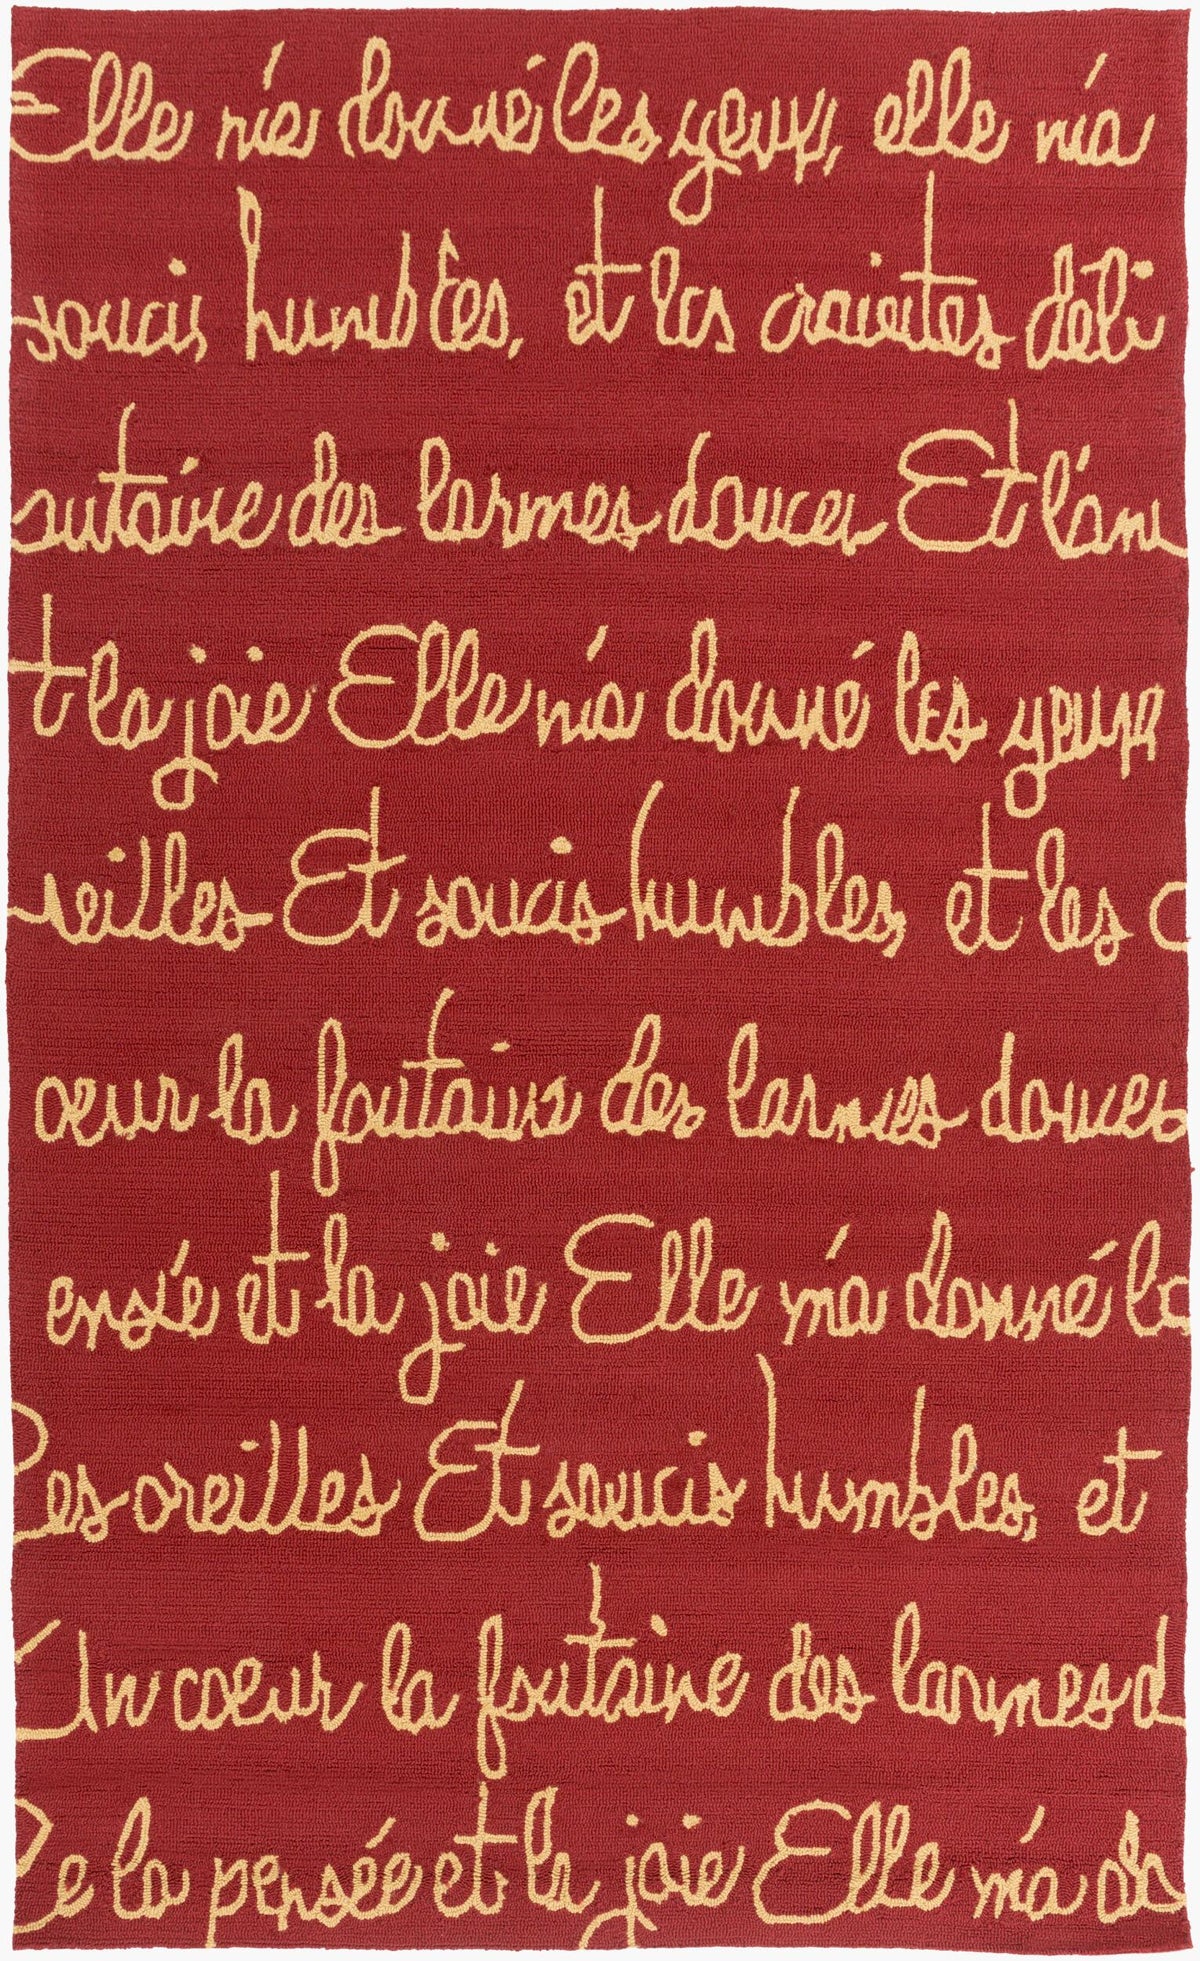 Elle m'a donné les yeux, elle m'a
soucis humbles, et les craintes déli
ontaine des larmes douces Et l'am
t la joie Elle m'a donné les yeux
reilles Et soucis humbles, et les c
œur la fontaine des larmes douces
ensée et la joie Elle m'a donné le
les oreilles Et soucis humbles, et
Un cœur la fontaine des larmes d
De la pensée et la joie Elle m'a do